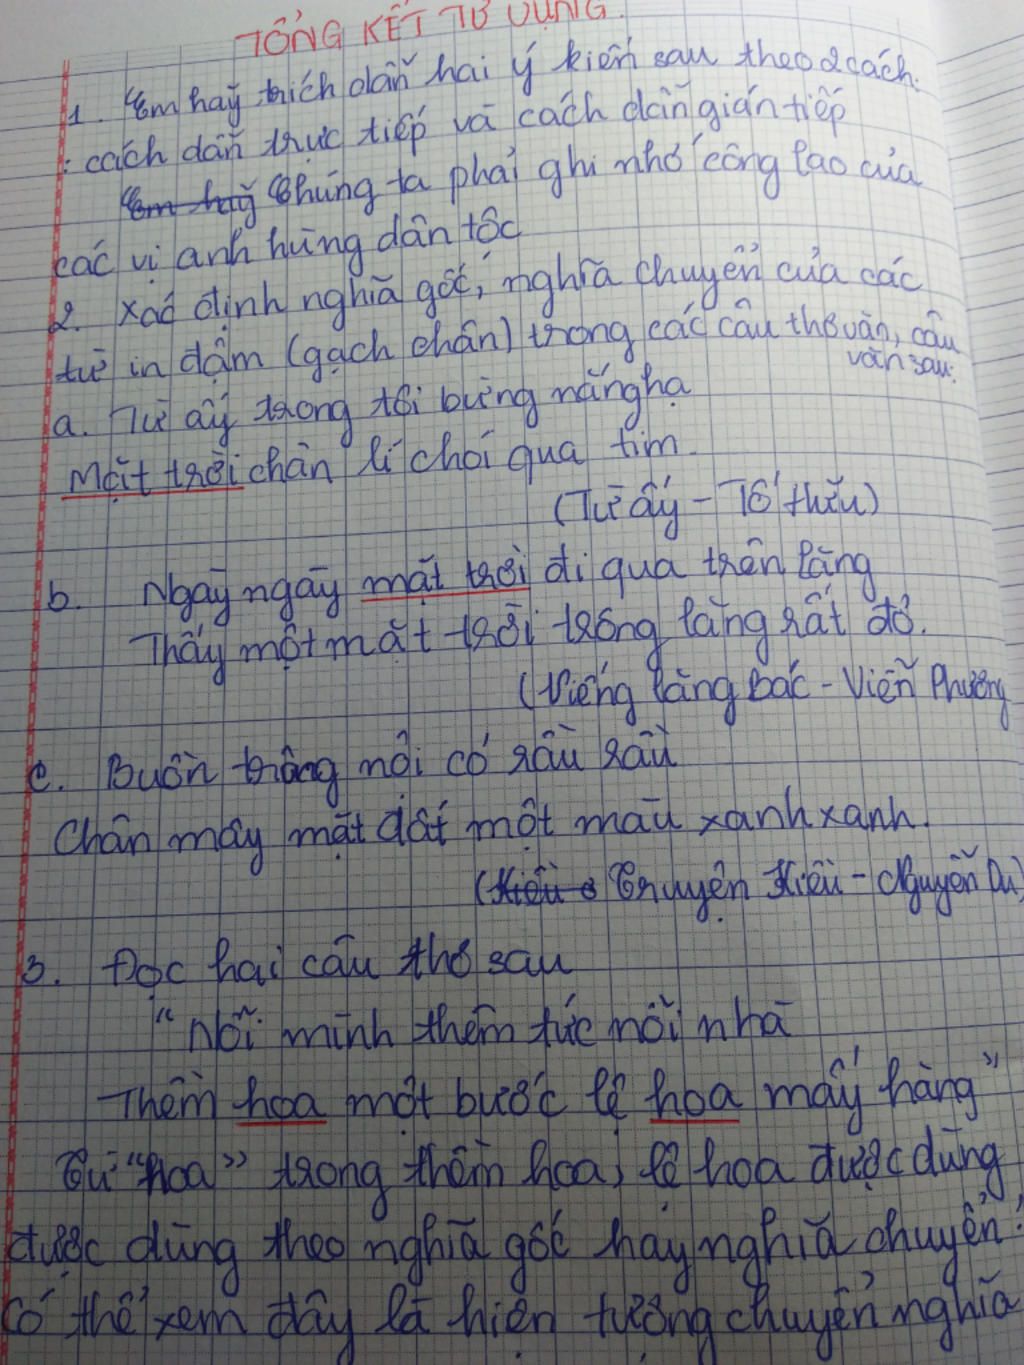 TỔNG KẾT TỪ VỰNG.
1. Em hãy trích dẫn hai ý kiến sau theo 2 cách.
: cách dẫn trực tiếp và cách dẫn gián tiếp
Em hãy Chúng ta phải ghi nhớ công lao của
các vị anh hùng dân tộc
2. Xác định nghĩa gốc, nghĩa chuyển của các
từ in đậm (gạch chân) trong các câu thơ văn, câu
văn sau:
a. Từ ấy trong tôi bừng nắng hạ
Mặt trời chân lí chói qua tim.
(Từ ấy - Tố Hữu)
b. Ngày ngày mặt trời đi qua trên lăng
Thấy một mặt trời trong lăng rất đỏ.
(Viếng lăng Bác - Viễn Phương
c. Buồn trông nội cỏ rầu rầu
Chân mây mặt đất một màu xanh xanh.
(Kiều Truyện Kiều - Nguyễn Du)
3. Đọc hai câu thơ sau
"Nỗi mình thêm tức nỗi nhà
Thềm hoa một bước lệ hoa mấy hàng"
Từ "hoa" trong thềm hoa, lệ hoa được dùng
được dùng theo nghĩa gốc hay nghĩa chuyển?
Có thể xem đây là hiện tượng chuyển nghĩa